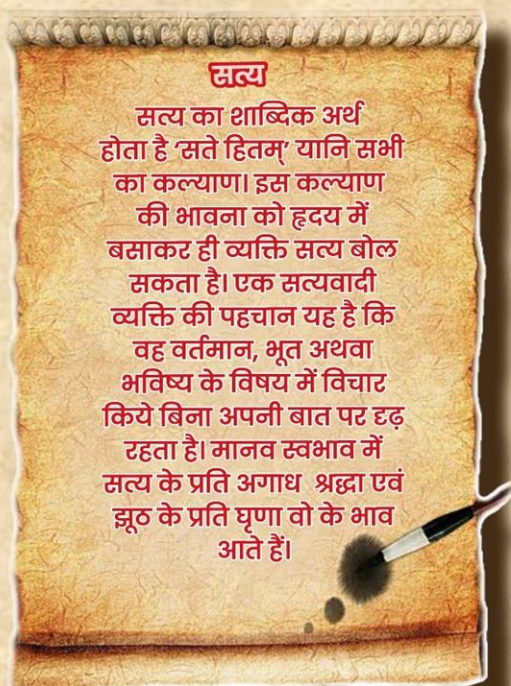 सत्य
सत्य का शाब्दिक अर्थ
होता है ‘सते हितम्’ यानि सभी
का कल्याण। इस कल्याण
की भावना को हृदय में
बसाकर ही व्यक्ति सत्य बोल
सकता है। एक सत्यवादी
व्यक्ति की पहचान यह है कि
वह वर्तमान, भूत अथवा
भविष्य के विषय में विचार
किये बिना अपनी बात पर दृढ़
रहता है। मानव स्वभाव में
सत्य के प्रति अगाध श्रद्धा एवं
झूठ के प्रति घृणा वो के भाव
आते हैं।